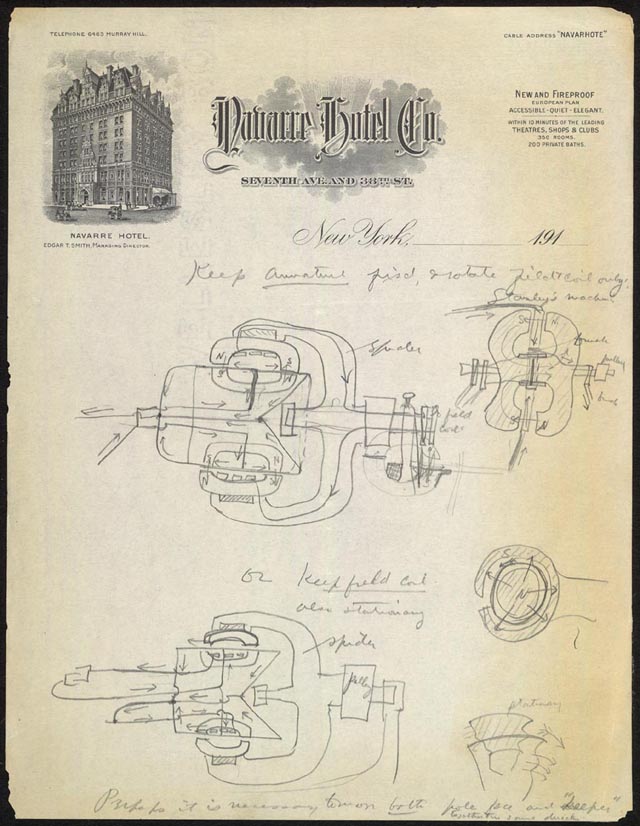 TELEPHONE 6463 MURRAY HILL.
CABLE ADDRESS "NAVARHOTE"
Navarre Hotel Co.
SEVENTH AVE. AND 38TH ST.
NEW AND FIREPROOF
EUROPEAN PLAN
ACCESSIBLE-QUIET-ELEGANT.
WITHIN 10 MINUTES OF THE LEADING
THEATRES, SHOPS & CLUBS
350 ROOMS.
200 PRIVATE BATHS.
NAVARRE HOTEL.
EDGAR T. SMITH, MANAGING DIRECTOR.
New York, 191
Keep Armature fixd, & rotate field coil only.
Stanley's machine
N S
S N
brush
pulley
spider
N S
field
coil
N
S
or Keep field coil
also stationary
spider
pully
S
N
stationary
Perhaps it is necessary to move both pole pce and "keeper"
together in same direction